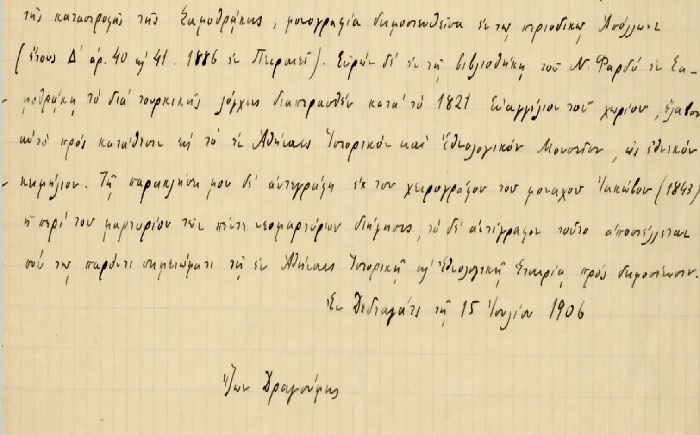 τῆς καταστροφῆς τῆς Σαμοθράκης, μονογραφία δημοσιευθεῖσα ἐν τῷ περιοδικῷ Ἀπόλλωνι
(ἔτους Δ' ἀρ. 40 κ' 41. 1886 ἐν Πειραιεῖ). Εὑρών δέ ἐν τῇ βιβλιοθήκῃ τοῦ Ν. Φαρδύ ἐν Σα-
μοθράκῃ τό διά τουρκικῆς λόγχης διαπερασθέν κατά τό 1821 Εὐαγγέλιον τοῦ χωρίου, ἔλαβον
αὐτό πρός κατάθεσιν εἰς τό ἐν Ἀθήναις Ἱστορικόν καί Ἐθνολογικόν Μουσεῖον, ὡς ἐθνικόν
κειμήλιον. Τῇ παρακλήσει μου δέ ἀντεγράφη ἐκ τοῦ χειρογράφου τοῦ μοναχοῦ Ἰακώβου (1843)
ἡ περί τοῦ μαρτυρίου τῶν πέντε νεομαρτύρων διήγησις, τό δέ ἀντίγραφον τοῦτο ἀποστέλλεται
σύν τῷ παρόντι σημειώματι τῇ ἐν Ἀθήναις Ἱστορικῇ κ' Ἐθνολογικῇ Ἑταιρίᾳ πρός δημοσίευσιν.
Ἐν Δεδεαγάτς τῇ 15 Ἰουλίου 1906
Ἴων Δραγούμης